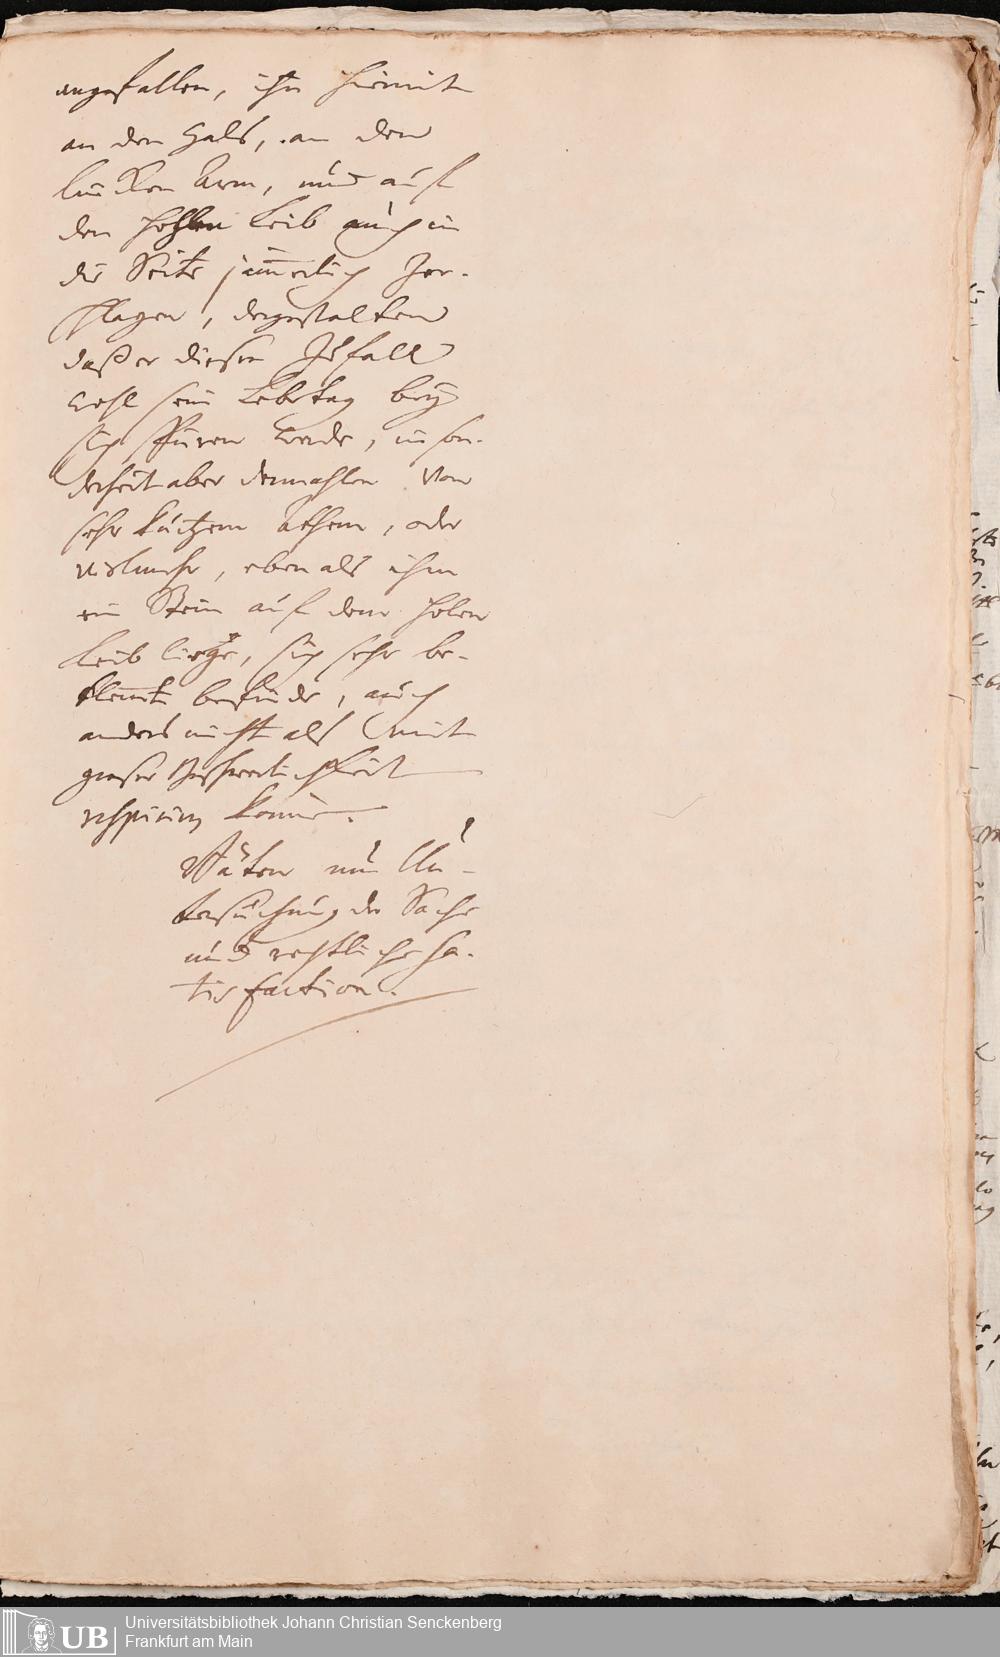 angefallen, ihn hiemit
an den Hals, an den
lincken Arm, und auf
den hohlen Leib auch in
die Seite jam̅erlich zer-
schlagen, dergestalten
daß er diesen Zufall
wohl sein Lebetag bey
sich spüren werde, inson-
derheit aber dermahlen von
sehr kurtzem Athem, oder
vielmehr, eben als ihm
ein Stein auf dem holen
Leib liege, sich sehr be-
klem̅t befinde, auch
anders nicht als mit
großer Beschwerlichkeit
respiriren könne.
Bäten um Un-
tersuchung der Sache
und rechtliche Sa-
tisfaction.
Universitätsbibliothek Johann Christian Senckenberg
Frankfurt am Main
UB